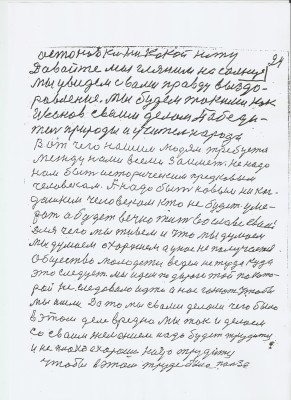 остановки никакой нету
24
Давайте мы гляним на солнце
мы увидем свами правду выздо-
ровление. мы будем такими как
Иванов своим делом Победи-
тел природы и учител народа
Вот чего нашим людям требуется
между нами всеми Займет не надо
нам быт историческим предковым
человекам. А надо быт новым ни ког-
дашним человеком кто не будет уми-
рат а будет вечно жит во славе своей
Для чего мы живем и что мы думаем
мы думаем охорошем а у нас не получается
общество молодежи верея не туда куда
это следует мы идем по дуроге той по кото-
рой не следовало идти а нас гонят чтобы
мы шли. Да то мы своим делом чего было
в этом деле вредно мы так и делаем
со своим желанием надо будет трудиту
и не плохо а хорошо надо трудиту
чтобы в этом труде была полза